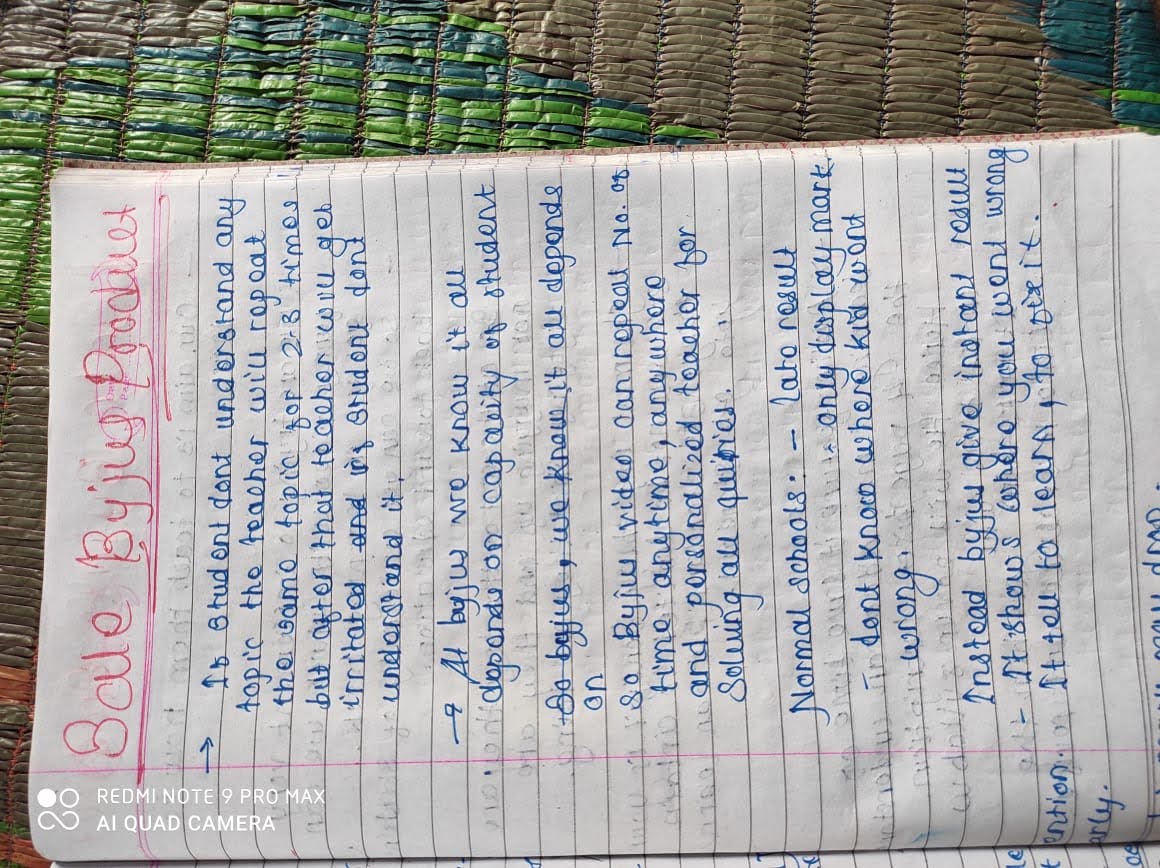 Sale Byjus Product
→ If student dont understand any
topic the teacher will repeat
the same topic for 2-3 times
but after that teacher will get
irritated and if student dont
understand it.
→ At byjus we know it all
depends on capacity of student
So byjus, we know it all depends
on
So Byjus video can repeat No. of
time anytime, anywhere
and personalized teacher for
Solving all quiries.
Normal schools: - late result
- only display mark.
- dont know where kid went
wrong.
Instead byjus give instant result
- It shows where you went wrong
ention. It tell to learn, to fix it.
arly.
may drop.
REDMI NOTE 9 PRO MAX
AI QUAD CAMERA